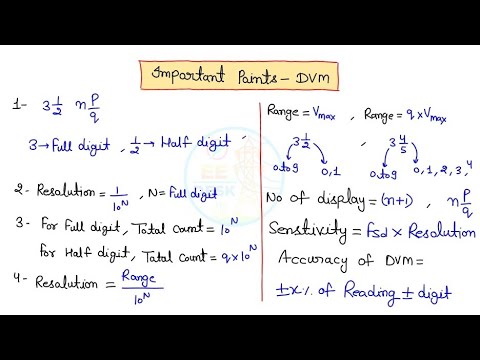 Important Points - DVM
1- 3 1/2 n P/q
3→Full digit , 1/2→Half digit ,
2- Resolution = 1/10^N , N= Full digit
3 - For Full digit, Total Count = 10^N
for Half digit, Total Count = q×10^N
4- Resolution = Range/10^N
Range = Vmax , Range = q×Vmax
3 1/2 , 3 4/5
0 to 9 0,1 0 to 9 0,1,2,3,4
No of display = (n+1) , n P/q
Sensitivity = fsd × Resolution
Accuracy of DVM =
±x% of Reading ± digit